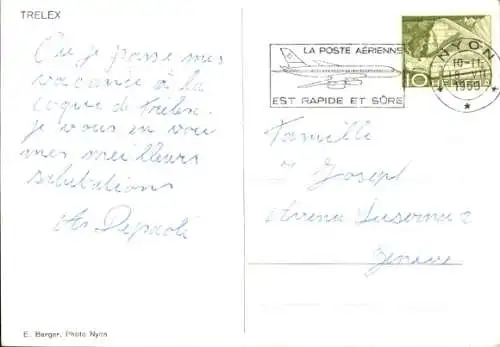 TRELEX
Ou je passe mes
vacance à la
coque de Trelex.
je vous en voi
mes meilleurs
salutations
LA POSTE AÉRIENNE
EST RAPIDE ET SÛRE
NYON
10-11
1959
10
Famille
Joseph
Luserna 2
Genève
E. Berger, Photo Nyon